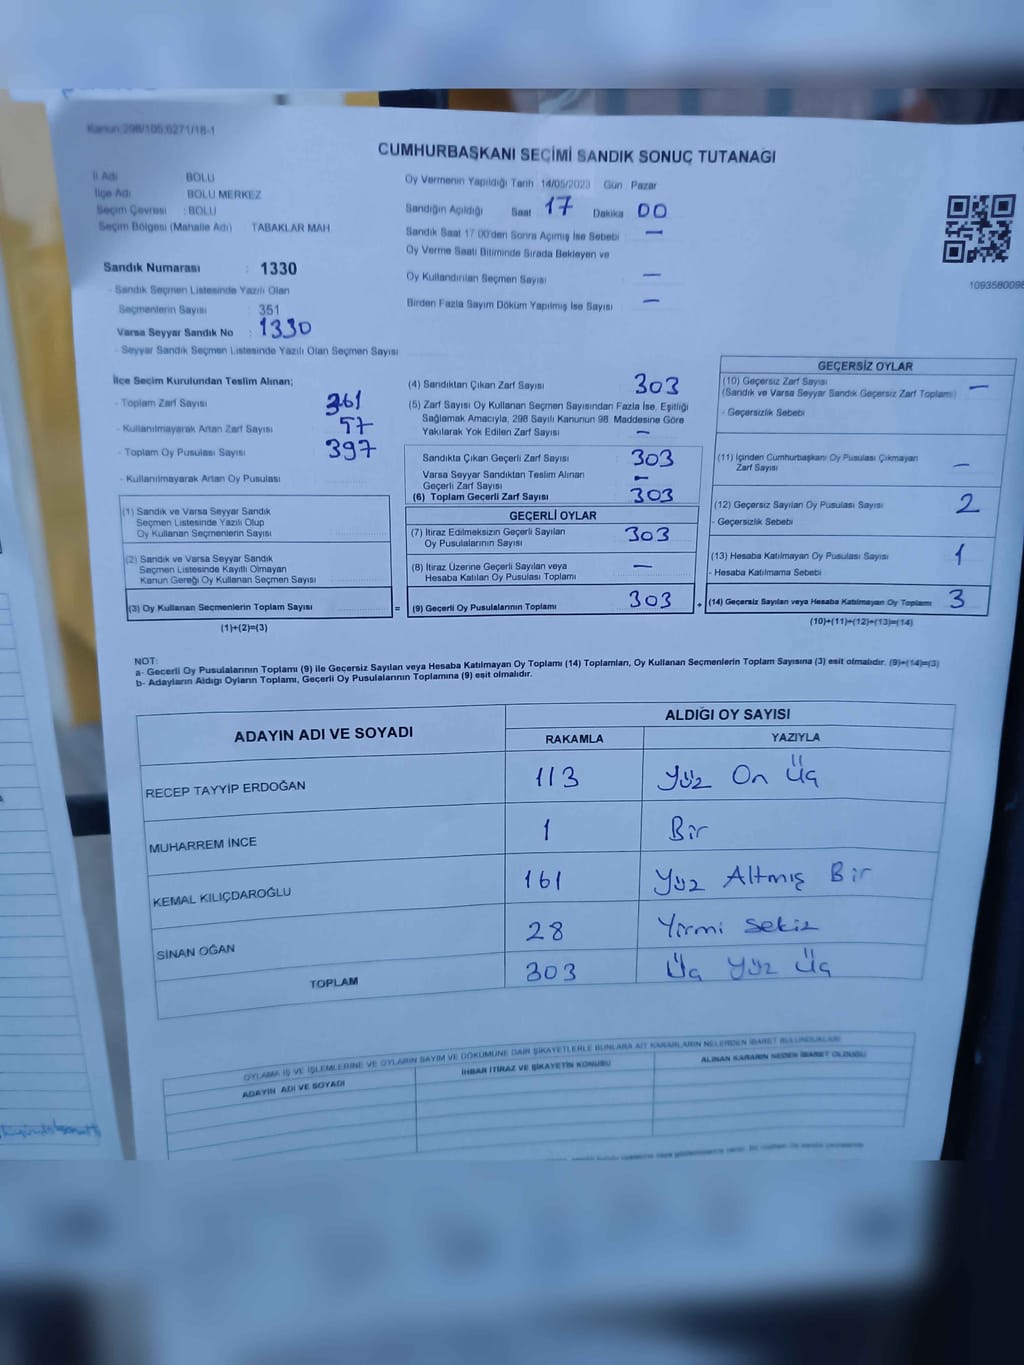 Kanun:298/105,6271/18-1
CUMHURBAŞKANI SEÇİMİ SANDIK SONUÇ TUTANAĞI
İl Adı BOLU
İlçe Adı BOLU MERKEZ
Seçim Çevresi : BOLU
Seçim Bölgesi (Mahalle Adı) TABAKLAR MAH.
Sandık Numarası : 1330
- Sandık Seçmen Listesinde Yazılı Olan
Seçmenlerin Sayısı : 351
Varsa Seyyar Sandık No : 1330
- Seyyar Sandık Seçmen Listesinde Yazılı Olan Seçmen Sayısı
Oy Vermenin Yapıldığı Tarih 14/05/2023 Gün : Pazar
Sandığın Açıldığı Saat 17 Dakika 00
Sandık Saat 17:00'den Sonra Açımış İse Sebebi —
Oy Verme Saati Bitiminde Sırada Bekleyen ve
Oy Kullandırılan Seçmen Sayısı —
Birden Fazla Sayım Döküm Yapılmış İse Sayısı —
1093580098
İlçe Seçim Kurulundan Teslim Alınan;
- Toplam Zarf Sayısı 361
- Kullanılmayarak Artan Zarf Sayısı 57
- Toplam Oy Pusulası Sayısı 397
- Kullanılmayarak Artan Oy Pusulası
(1) Sandık ve Varsa Seyyar Sandık
Seçmen Listesinde Yazılı Olup
Oy Kullanan Seçmenlerin Sayısı
(2) Sandık ve Varsa Seyyar Sandık
Seçmen Listesinde Kayıtlı Olmayan
Kanun Gereği Oy Kullanan Seçmen Sayısı
(3) Oy Kullanan Seçmenlerin Toplam Sayısı =
(1)+(2)=(3)
(4) Sandıktan Çıkan Zarf Sayısı 303
(5) Zarf Sayısı Oy Kullanan Seçmen Sayısından Fazla İse, Eşitliği
Sağlamak Amacıyla, 298 Sayılı Kanunun 98. Maddesine Göre
Yakılarak Yok Edilen Zarf Sayısı —
Sandıkta Çıkan Geçerli Zarf Sayısı 303
Varsa Seyyar Sandıktan Teslim Alınan
Geçerli Zarf Sayısı —
(6) Toplam Geçerli Zarf Sayısı 303
GEÇERLİ OYLAR
(7) İtiraz Edilmeksizin Geçerli Sayılan
Oy Pusulalarının Sayısı 303
(8) İtiraz Üzerine Geçerli Sayılan veya
Hesaba Katılan Oy Pusulası Toplamı —
(9) Geçerli Oy Pusulalarının Toplamı 303 +
GEÇERSİZ OYLAR
(10) Geçersiz Zarf Sayısı —
(Sandık ve Varsa Seyyar Sandık Geçersiz Zarf Toplamı)
- Geçersizlik Sebebi
(11) İçinden Cumhurbaşkanı Oy Pusulası Çıkmayan
Zarf Sayısı —
(12) Geçersiz Sayılan Oy Pusulası Sayısı 2
- Geçersizlik Sebebi
(13) Hesaba Katılmayan Oy Pusulası Sayısı 1
- Hesaba Katılmama Sebebi
(14) Geçersiz Sayılan veya Hesaba Katılmayan Oy Toplamı 3
(10)+(11)+(12)+(13)=(14)
NOT:
a- Geçerli Oy Pusulalarının Toplamı (9) ile Geçersiz Sayılan veya Hesaba Katılmayan Oy Toplamı (14) Toplamları, Oy Kullanan Seçmenlerin Toplam Sayısına (3) eşit olmalıdır. (9)+(14)=(3)
b- Adayların Aldığı Oyların Toplamı, Geçerli Oy Pusulalarının Toplamına (9) eşit olmalıdır.
ADAYIN ADI VE SOYADI ALDIĞI OY SAYISI
RAKAMLA YAZIYLA
RECEP TAYYİP ERDOĞAN 113 Yüz On Üç
MUHARREM İNCE 1 Bir
KEMAL KILIÇDAROĞLU 161 Yüz Altmış Bir
SİNAN OĞAN 28 Yirmi Sekiz
TOPLAM 303 Üç Yüz Üç
OYLAMA İŞ VE İŞLEMLERİNE VE OYLARIN SAYIM VE DÖKÜMÜNE DAİR ŞİKAYETLERLE BUNLARA AİT KARARLARIN NELERDEN İBARET BULUNDUKLARI
ADAYIN ADI VE SOYADI İHBAR İTİRAZ VE ŞİKAYETİN KONUSU ALINAN KARARIN NEDEN İBARET OLDUĞU